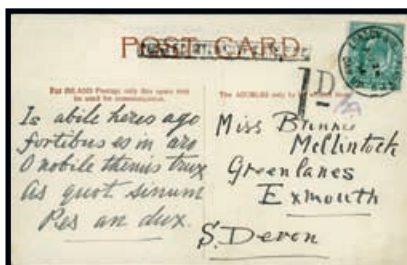 POST CARD
For INLAND Postage only this space may
be used for communication.
The ADDRESS only to be
Is abile heres ago
Fortibus es in aro
O nobile themis trux
As quot sinum
Pes an dux.
1D
Miss
McClintock
Greenlanes
Exmouth
S. Devon